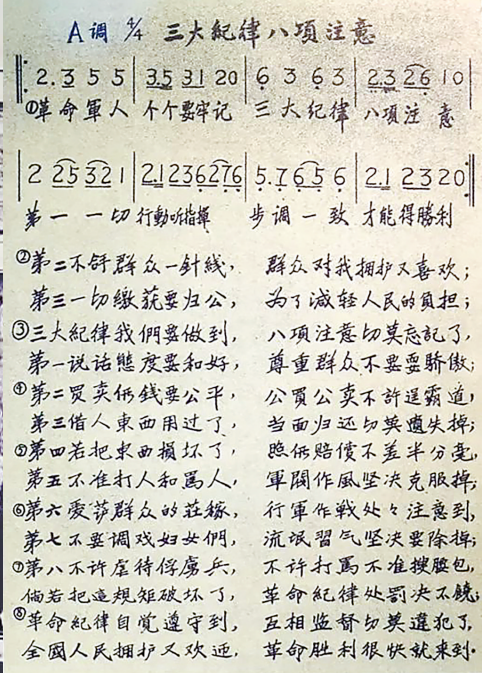 A调 4/4 三大紀律八項注意
2. 3 5 5 | 3 5 3 1 2 0 | 6 3 6 3 | 2 3 2 6 1 0 |
①革命軍人 个个要牢记 三大纪律 八項注意
2 2 5 3 2 1 | 2. 1 2 3 6 2 7 6 | 5. 7 6 5 6 | 2. 1 2 3 2 0
第一一切 行動听指揮 步调一致 才能得勝利
②第二不許群众一針綫， 群众对我拥护又喜欢；
第三一切缴获要归公， 为了減轻人民的負担；
③三大紀律我們要做到， 八項注意切莫忘記了，
第一说话態度要和好， 尊重群众不要耍驕傲；
④第二買卖価錢要公平， 公買公卖不許逞霸道，
第三借人東西用过了， 当面归还切莫遺失掉；
⑤第四若把東西損坏了， 照価賠償不差半分毫，
第五不准打人和罵人， 軍閥作風坚决克服掉；
⑥第六愛护群众的莊稼， 行軍作战处々注意到，
第七不要调戏妇女們， 流氓習气坚决要除掉；
⑦第八不许虐待俘虜兵， 不许打罵不准搜腰包，
倘若把這规矩破坏了， 革命紀律处罰决不饒；
⑧革命紀律自覚遵守到， 互相监督切莫違犯了，
全國人民拥护又欢迎， 革命胜利很快就来到．